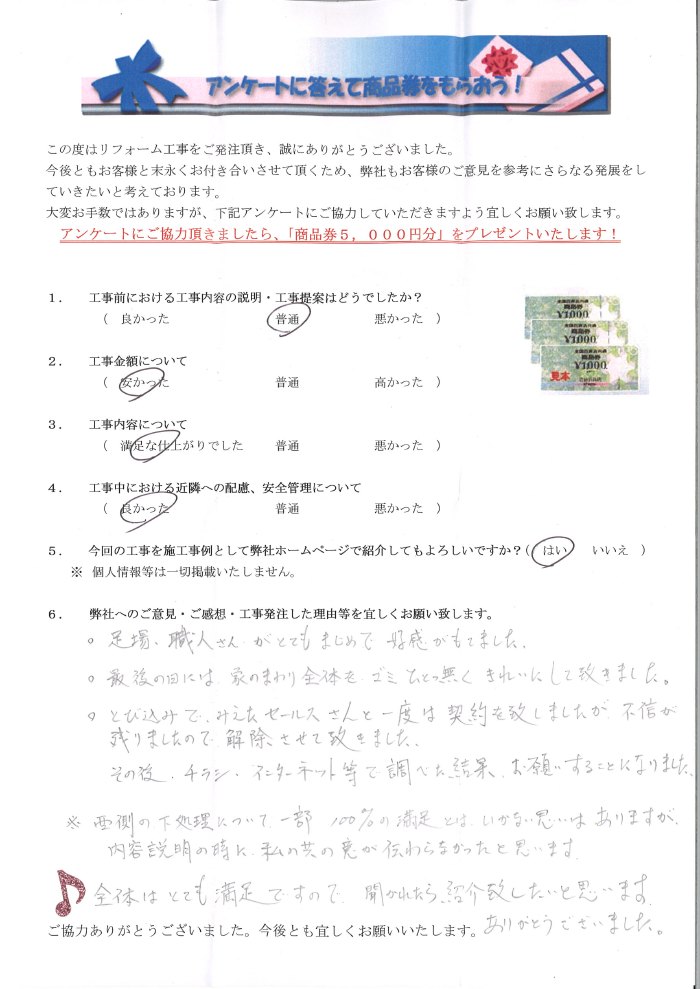 アンケートに答えて商品券をもらおう！
この度はリフォーム工事をご発注頂き、誠にありがとうございました。
今後ともお客様と末永くお付き合いさせて頂くため、弊社もお客様のご意見を参考にさらなる発展をし
ていきたいと考えております。
大変お手数ではありますが、下記アンケートにご協力していただきますよう宜しくお願い致します。
アンケートにご協力頂きましたら、「商品券５，０００円分」をプレゼントいたします！
１． 工事前における工事内容の説明・工事提案はどうでしたか？
（ 良かった 普通 悪かった ）
２． 工事金額について
（ 安かった 普通 高かった ）
３． 工事内容について
（ 満足な仕上がりでした 普通 悪かった ）
４． 工事中における近隣への配慮、安全管理について
（ 良かった 普通 悪かった ）
５． 今回の工事を施工事例として弊社ホームページで紹介してもよろしいですか？（ はい いいえ ）
※ 個人情報等は一切掲載いたしません。
商品券
¥1,000
商品券
¥1,000
商品券
¥1,000
見本
６． 弊社へのご意見・ご感想・工事発注した理由等を宜しくお願い致します。
○ 足場、職人さんがとてもまじめで 好感がもてました。
○ 最後の日には、家のまわり全体を、ゴミひとつ無く きれいにして致きました。
○ とび込みで、みえたセールスさんと一度は 契約を致しましたが、不信が
残りましたので、解除させて致きました。
その後、チラシ・インターネット等で調べた結果、お願いすることになりました。
※ 西側の下処理について、一部 100%の満足とは、いかない思いは ありますが、
内容説明の時に、私の共の意が伝わらなかったと思います。
全体はとても満足ですので、聞かれたら、紹介致したいと思います。
ありがとうございました。
ご協力ありがとうございました。今後とも宜しくお願いいたします。